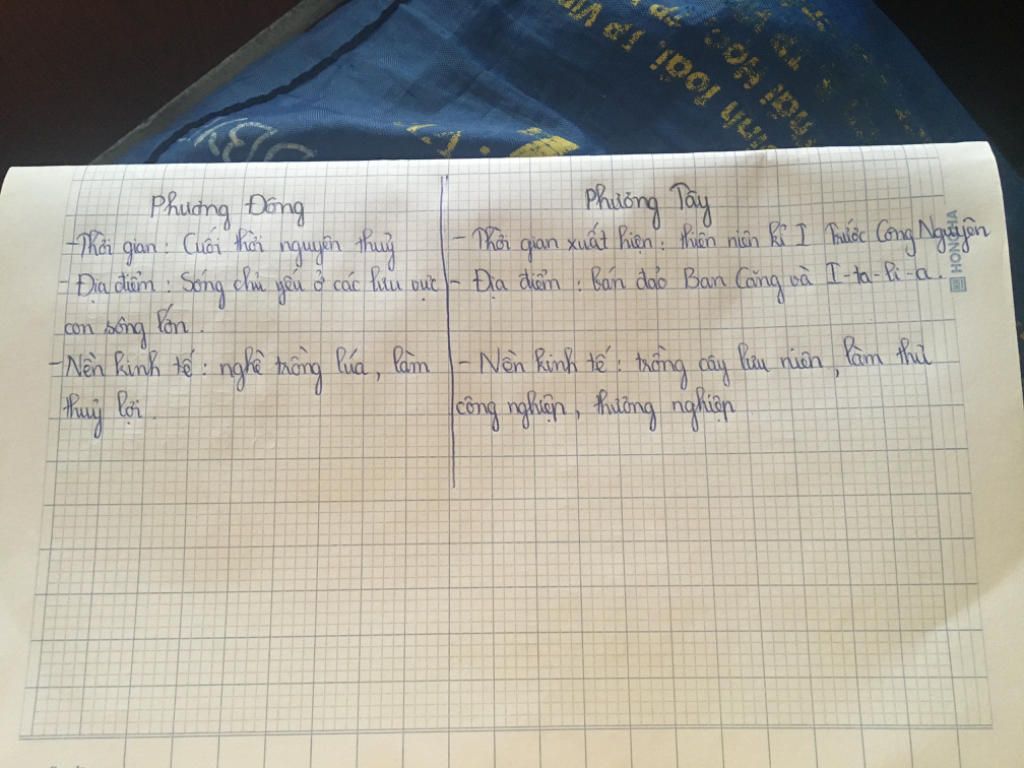 Phương Đông
- Thời gian : Cuối thời nguyên thuỷ
- Địa điểm : Sống chủ yếu ở các lưu vực
con sông lớn.
- Nền kinh tế : nghề trồng lúa, làm
thuỷ lợi.
Phương Tây
- Thời gian xuất hiện : thiên niên kỉ I Trước Công Nguyên
- Địa điểm : Bán đảo Ban Căng và I-ta-li-a.
- Nền kinh tế : trồng cây lưu niên, làm thủ
công nghiệp, thương nghiệp
HONG HA